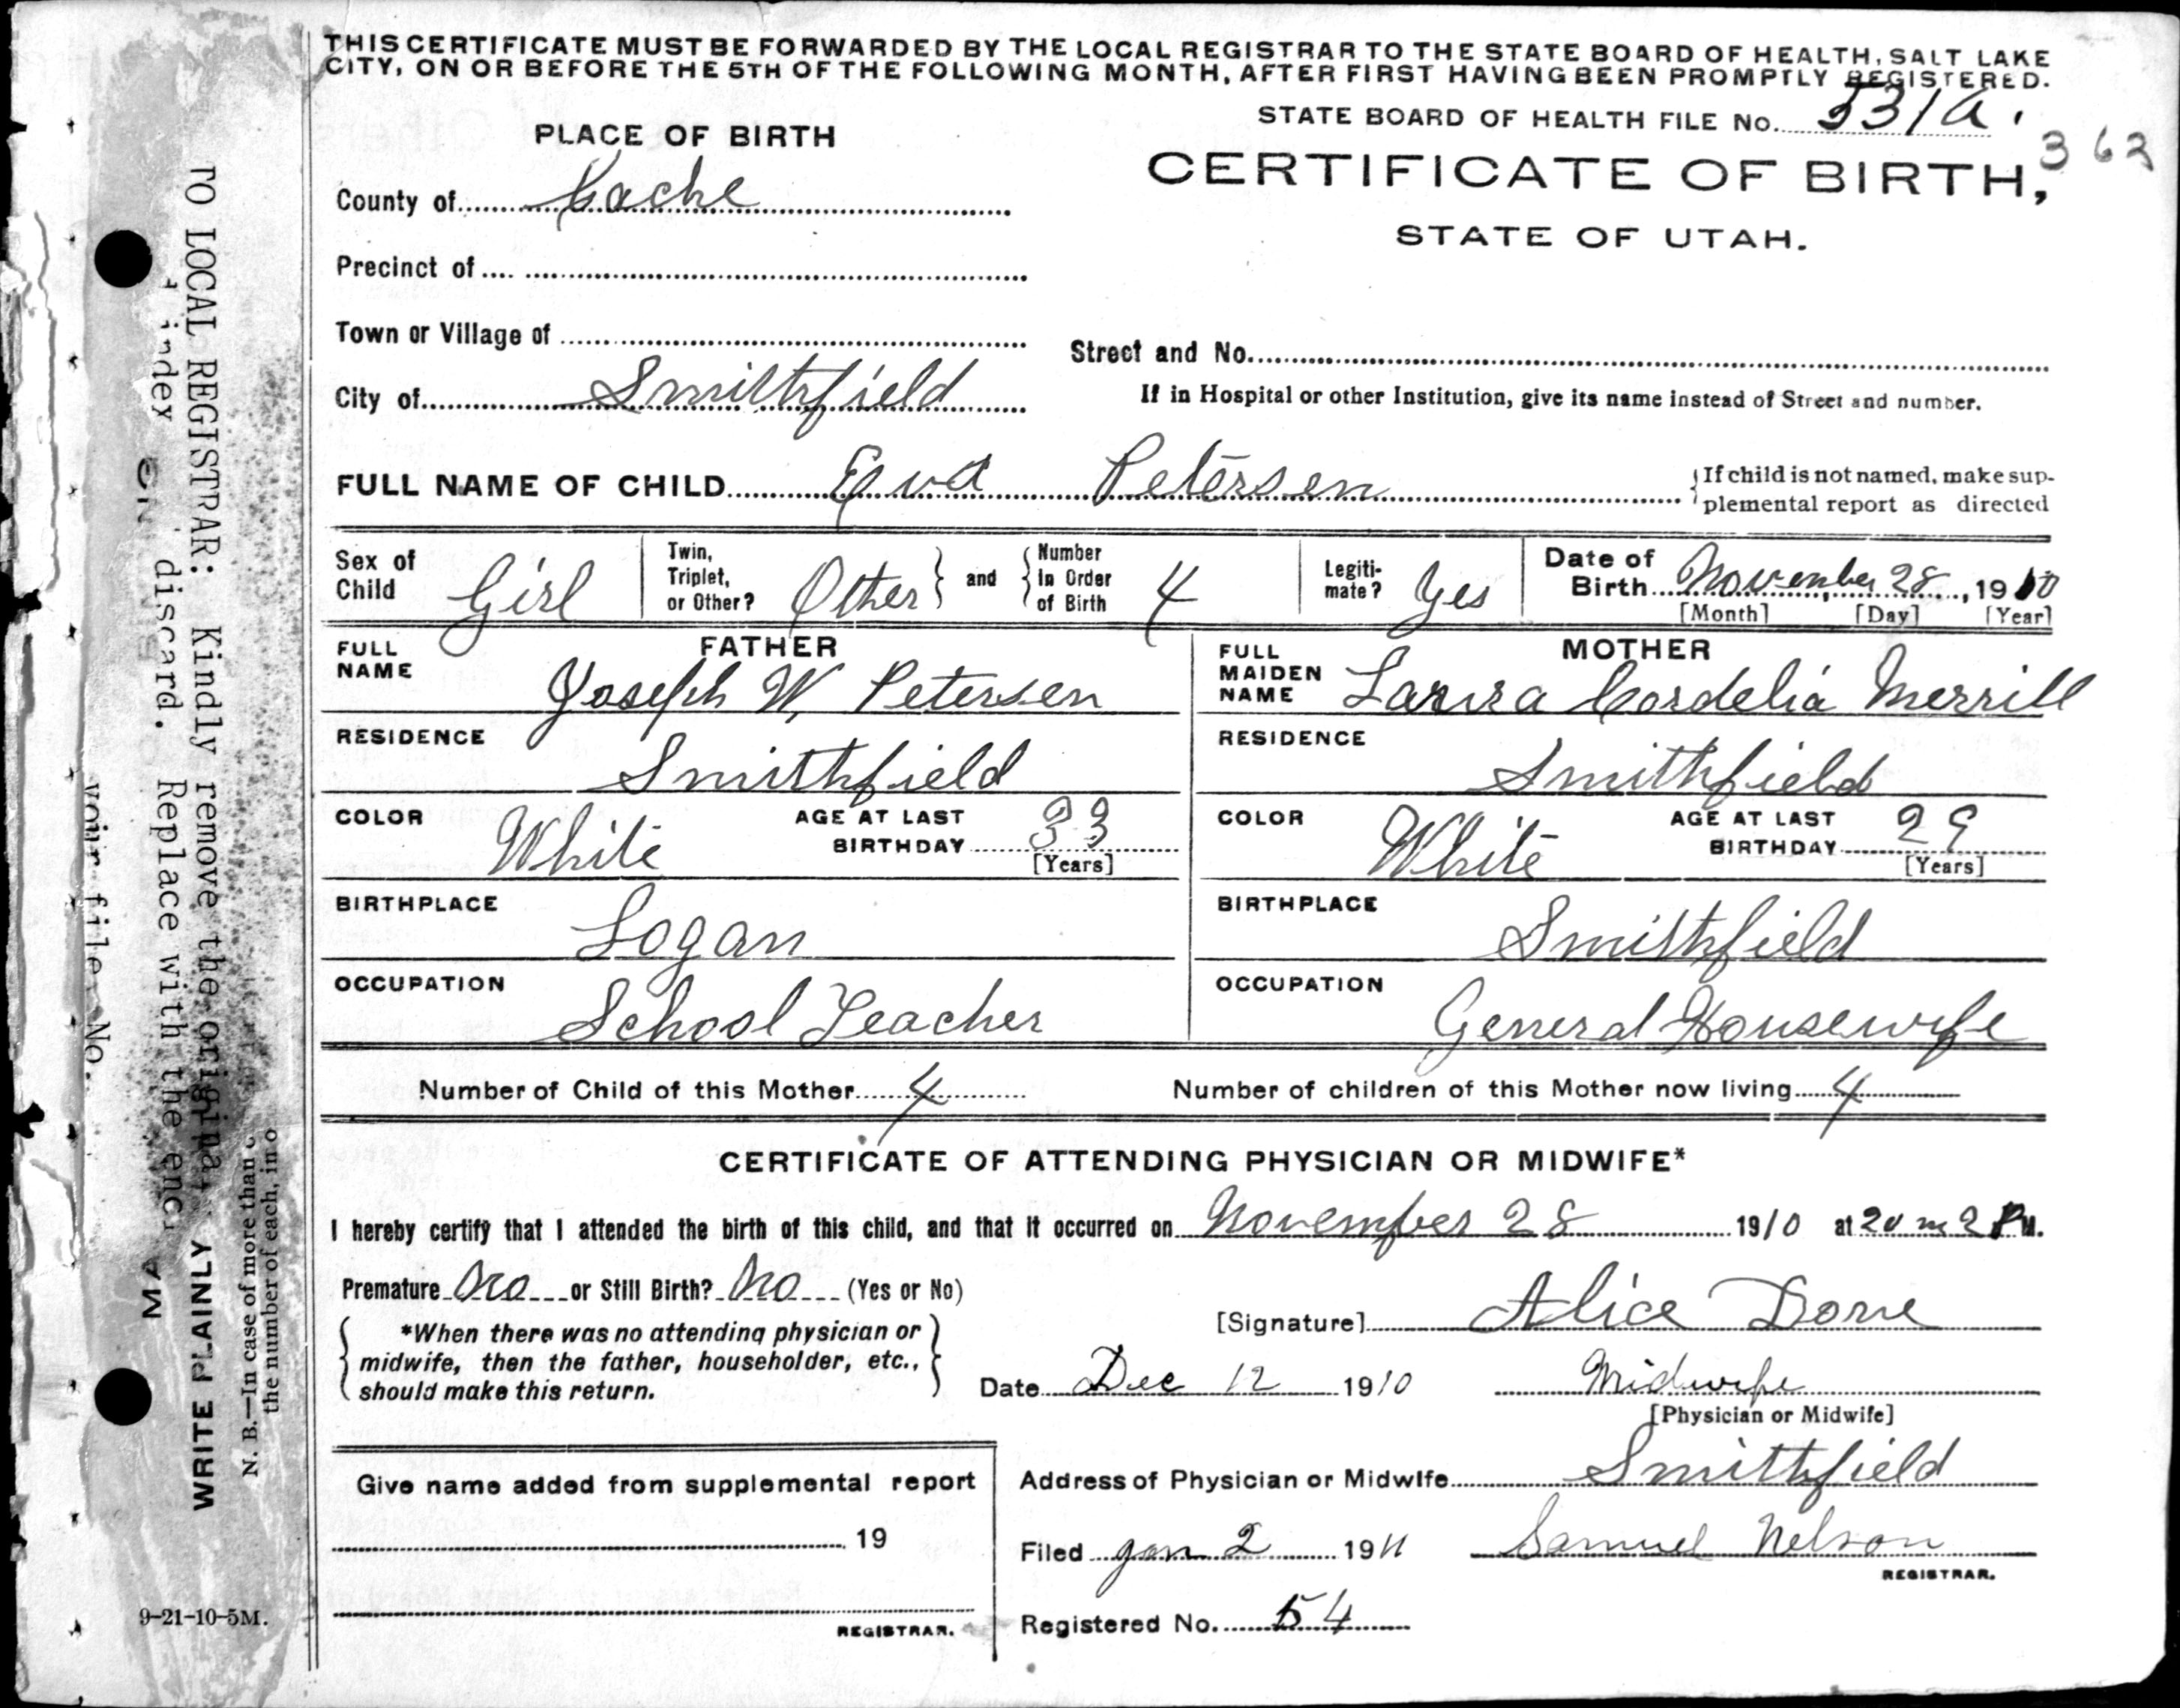 THIS CERTIFICATE MUST BE FORWARDED BY THE LOCAL REGISTRAR TO THE STATE BOARD OF HEALTH, SALT LAKE
CITY, ON OR BEFORE THE 5TH OF THE FOLLOWING MONTH, AFTER FIRST HAVING BEEN PROMPTLY REGISTERED.
STATE BOARD OF HEALTH FILE No. 531a.
362
PLACE OF BIRTH
CERTIFICATE OF BIRTH,
STATE OF UTAH.
County of Cache
Precinct of
Town or Village of
Street and No.
City of Smithfield
If in Hospital or other Institution, give its name instead of Street and number.
FULL NAME OF CHILD Eva Petersen
If child is not named, make sup-
plemental report as directed
Sex of Child Girl
Twin, Triplet, or Other? Other and Number In Order of Birth 4
Legiti-mate? Yes
Date of Birth November 28, 1910
[Month] [Day] [Year]
FATHER
FULL NAME Joseph W. Petersen
RESIDENCE Smithfield
COLOR White AGE AT LAST BIRTHDAY 33
[Years]
BIRTHPLACE Logan
OCCUPATION School Teacher
MOTHER
FULL MAIDEN NAME Laura Cordelia Merrill
RESIDENCE Smithfield
COLOR White AGE AT LAST BIRTHDAY 29
[Years]
BIRTHPLACE Smithfield
OCCUPATION General Housewife
Number of Child of this Mother 4 Number of children of this Mother now living 4
CERTIFICATE OF ATTENDING PHYSICIAN OR MIDWIFE*
I hereby certify that I attended the birth of this child, and that it occurred on November 28 1910 at 20 m 2 P M.
Premature No or Still Birth? No (Yes or No)
*When there was no attending physician or
midwife, then the father, householder, etc.,
should make this return.
[Signature] Alice
Date Dec 12 1910 Midwife
[Physician or Midwife]
Give name added from supplemental report
19
REGISTRAR.
Address of Physician or Midwife Smithfield
Filed Jan 2 1911 Samuel Nelson
REGISTRAR.
Registered No. 54
9-21-10-5M.
TO LOCAL REGISTRAR: Kindly remove the
discard. Replace with the
your file No.
WRITE PLAINLY
N. B.—In case of more than
the number of each, in o